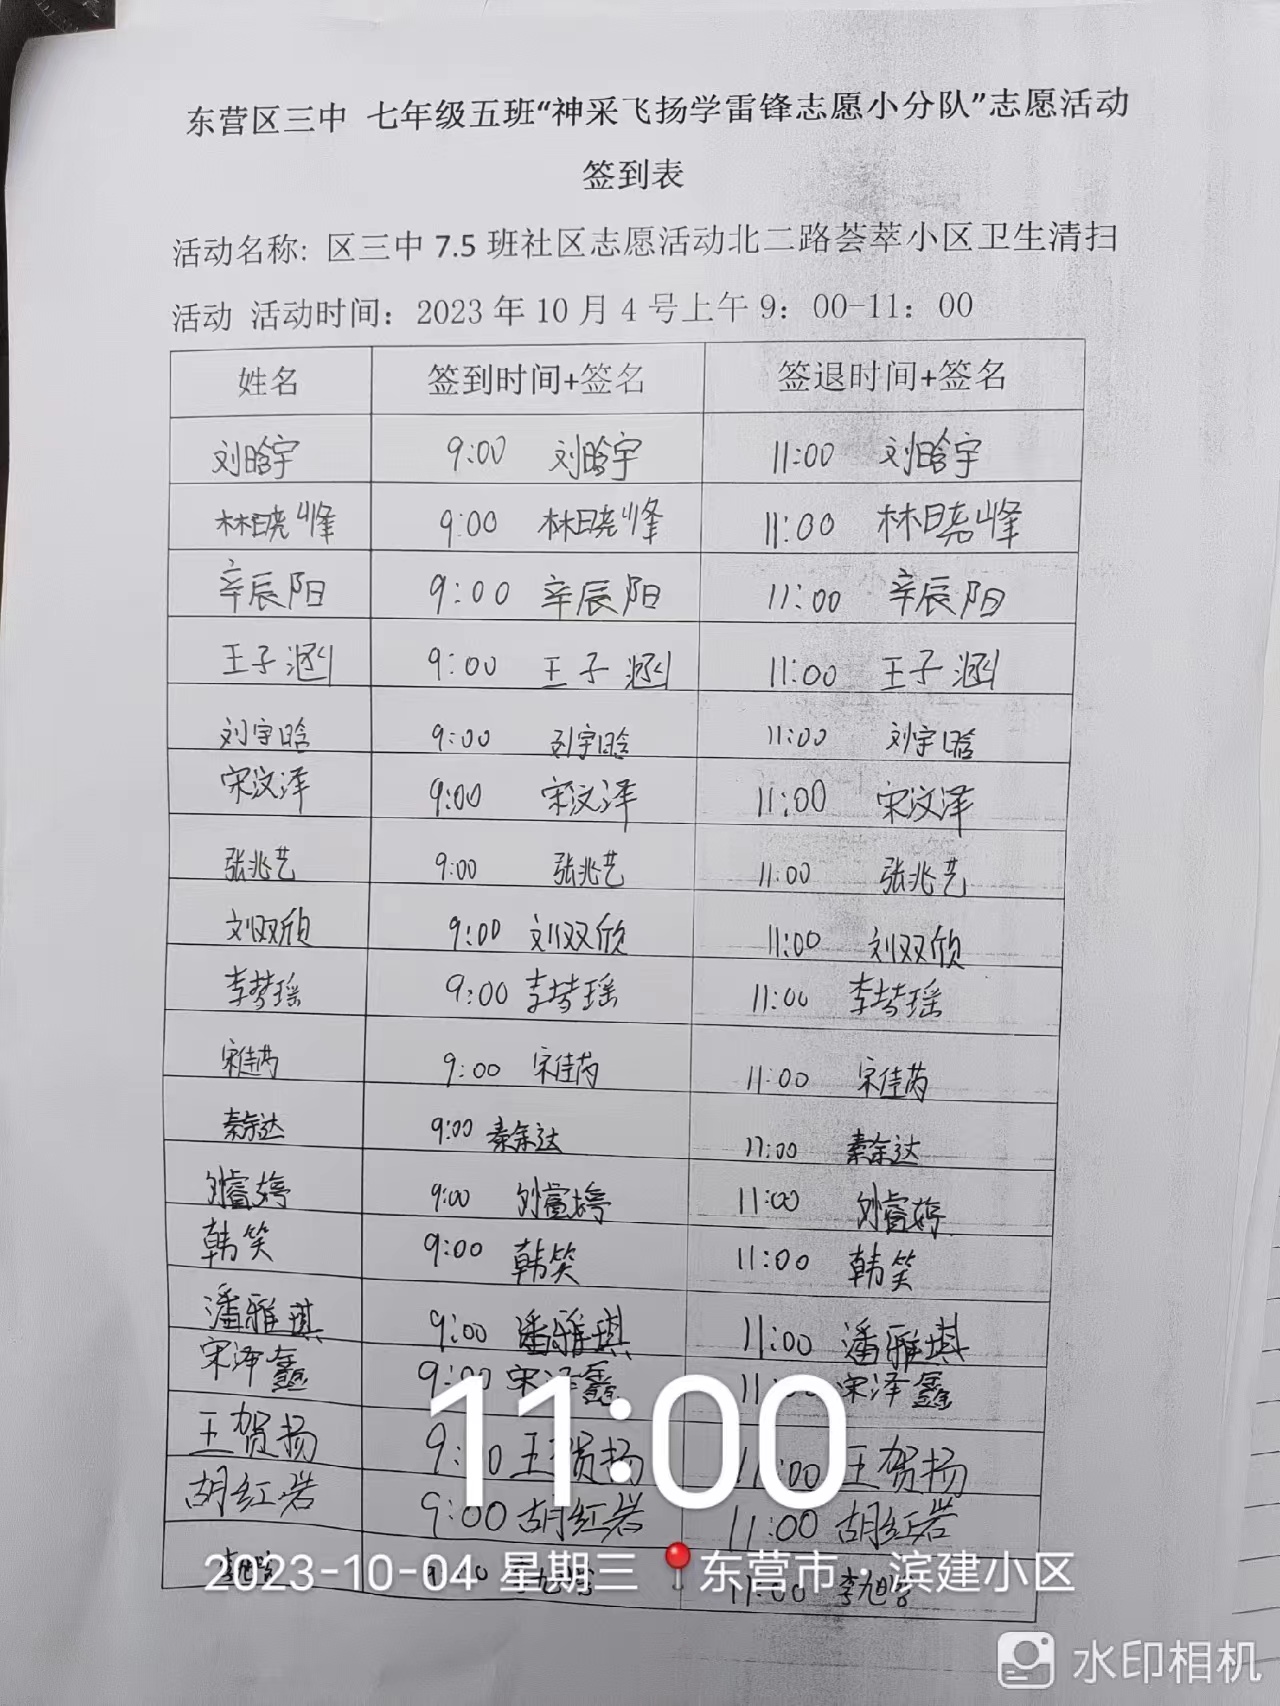 东营区三中 七年级五班“神采飞扬学雷锋志愿小分队”志愿活动
签到表
活动名称: 区三中 7.5 班社区志愿活动北二路荟萃小区卫生清扫
活动 活动时间：2023 年 10 月 4 号上午 9：00-11：00
姓名 签到时间+签名 签退时间+签名
刘晗宇 9:00 刘晗宇 11:00 刘晗宇
林晓峰 9:00 林晓峰 11:00 林晓峰
辛辰阳 9:00 辛辰阳 11:00 辛辰阳
王子涵 9:00 王子涵 11:00 王子涵
刘宇晗 9:00 刘宇晗 11:00 刘宇晗
宋汶泽 9:00 宋汶泽 11:00 宋汶泽
张兆艺 9:00 张兆艺 11:00 张兆艺
刘双欣 9:00 刘双欣 11:00 刘双欣
李梦瑶 9:00 李梦瑶 11:00 李梦瑶
宋佳芮 9:00 宋佳芮 11:00 宋佳芮
秦余达 9:00 秦余达 11:00 秦余达
刘睿婷 9:00 刘睿婷 11:00 刘睿婷
韩笑 9:00 韩笑 11:00 韩笑
潘雅琪 9:00 潘雅琪 11:00 潘雅琪
宋泽鑫 9:00 宋泽鑫 11:00 宋泽鑫
11:00
王贺扬 9:00 王贺扬 11:00 王贺扬
胡红岩 9:00 胡红岩 11:00 胡红岩
11:00 李旭
2023-10-04 星期三 东营市·滨建小区
水印相机